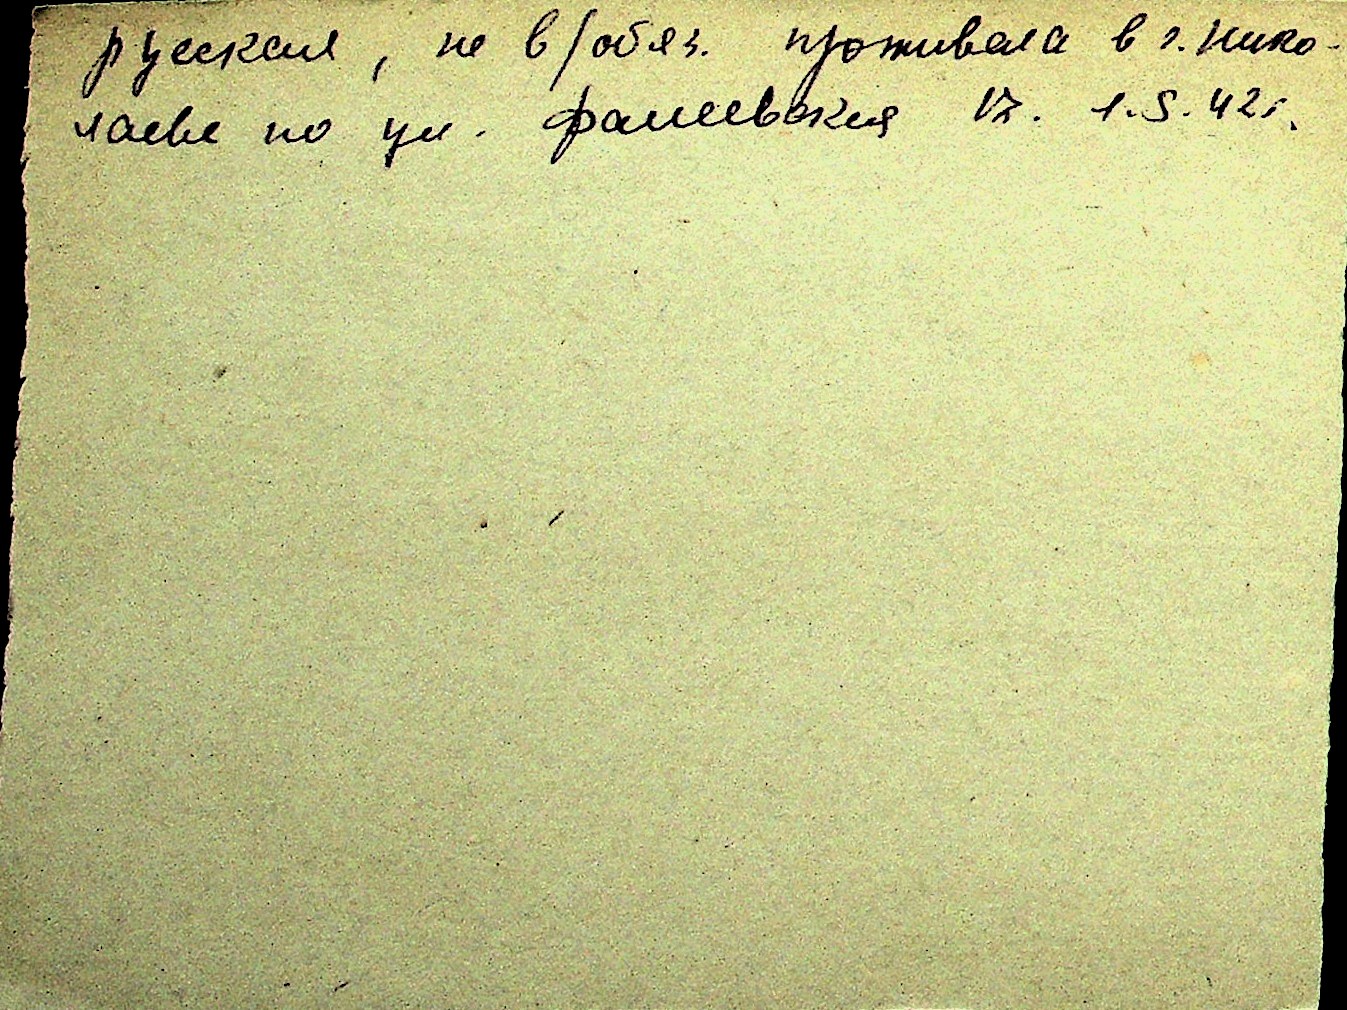 русская, не в/обяз. проживала в г. Нико-
лаеве по ул. Фалеевская 17. 1.5.42г.